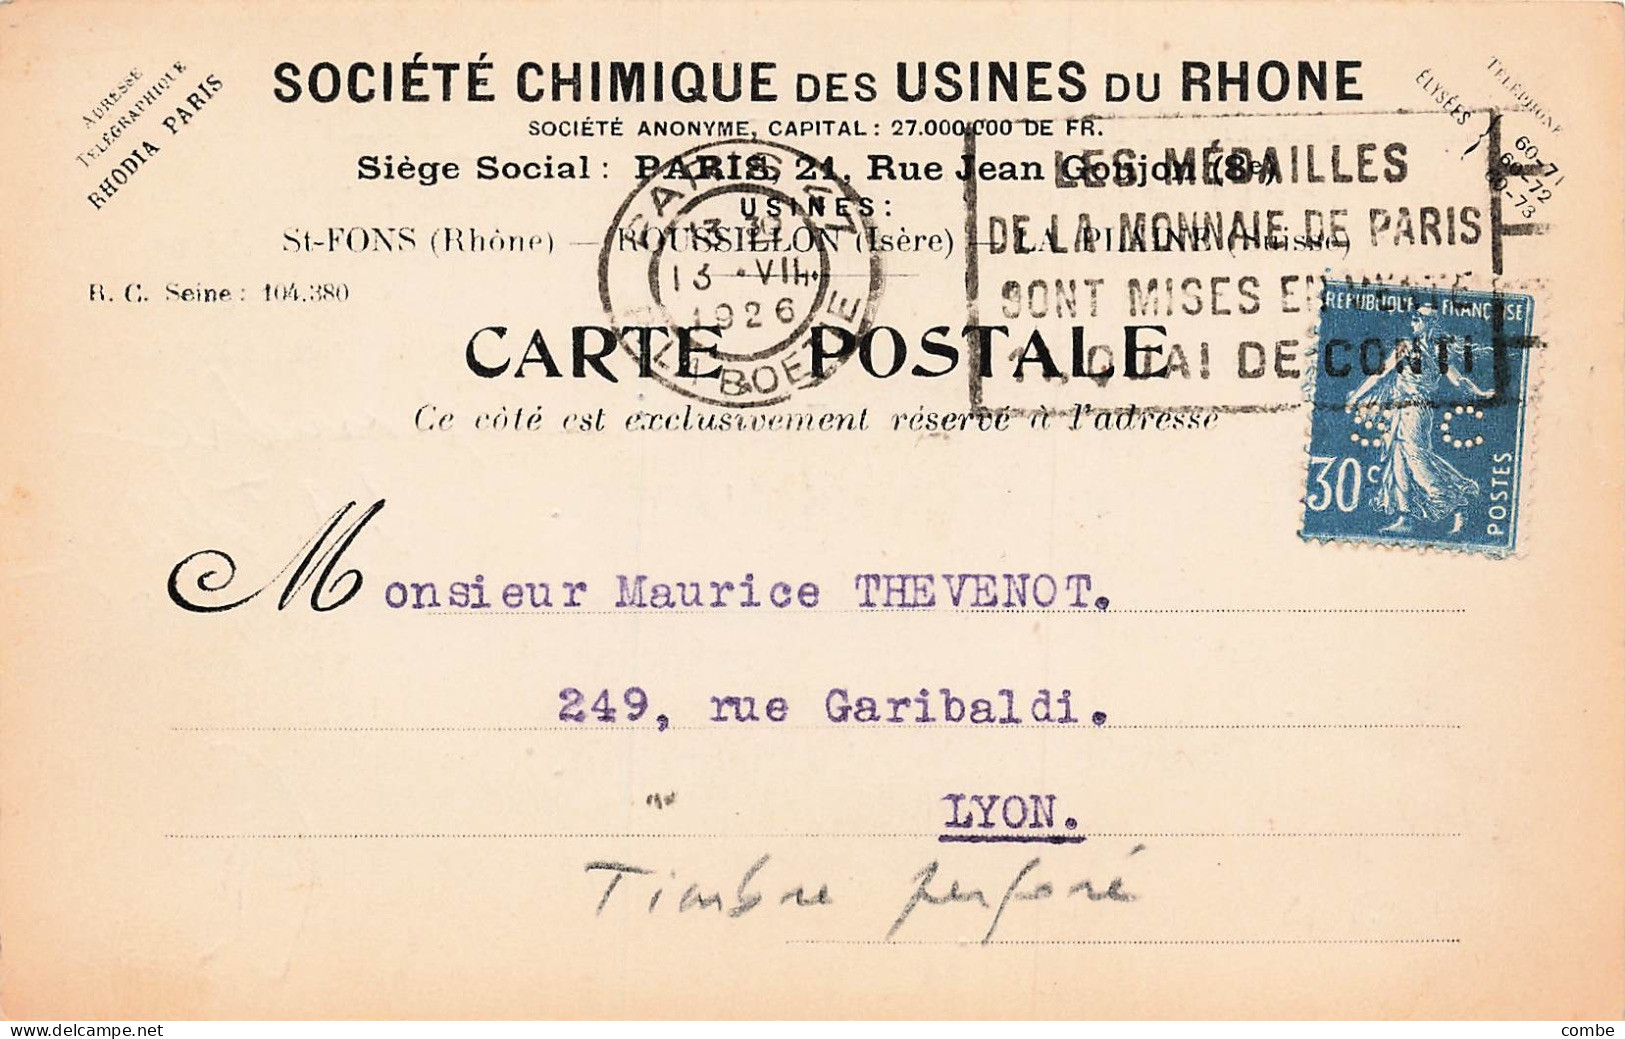 ADRESSE
TÉLÉGRAPHIQUE
RHODIA PARIS
SOCIÉTÉ CHIMIQUE DES USINES DU RHONE
SOCIÉTÉ ANONYME, CAPITAL: 27.000.000 DE FR.
Siège Social: PARIS, 21, Rue Jean Goujon (8e)
USINES:
St-FONS (Rhône) — ROUSSILLON (Isère) — LA PLAINE (Suisse)
R. C. Seine: 104.380
TÉLÉPHONE
ÉLYSÉES
60-71
60-72
60-73
PARIS
13 30
13 •VII•
1926
R. LA BOETIE
LES MÉDAILLES
DE LA MONNAIE DE PARIS
SONT MISES EN VENTE
11, QUAI DE CONTI
REPUBLIQUE FRANÇAISE
30c
POSTES
CARTE POSTALE
Ce côté est exclusivement réservé à l'adresse
Monsieur Maurice THEVENOT.
249, rue Garibaldi.
LYON.
Timbre perforé
www.delcampe.net
combe